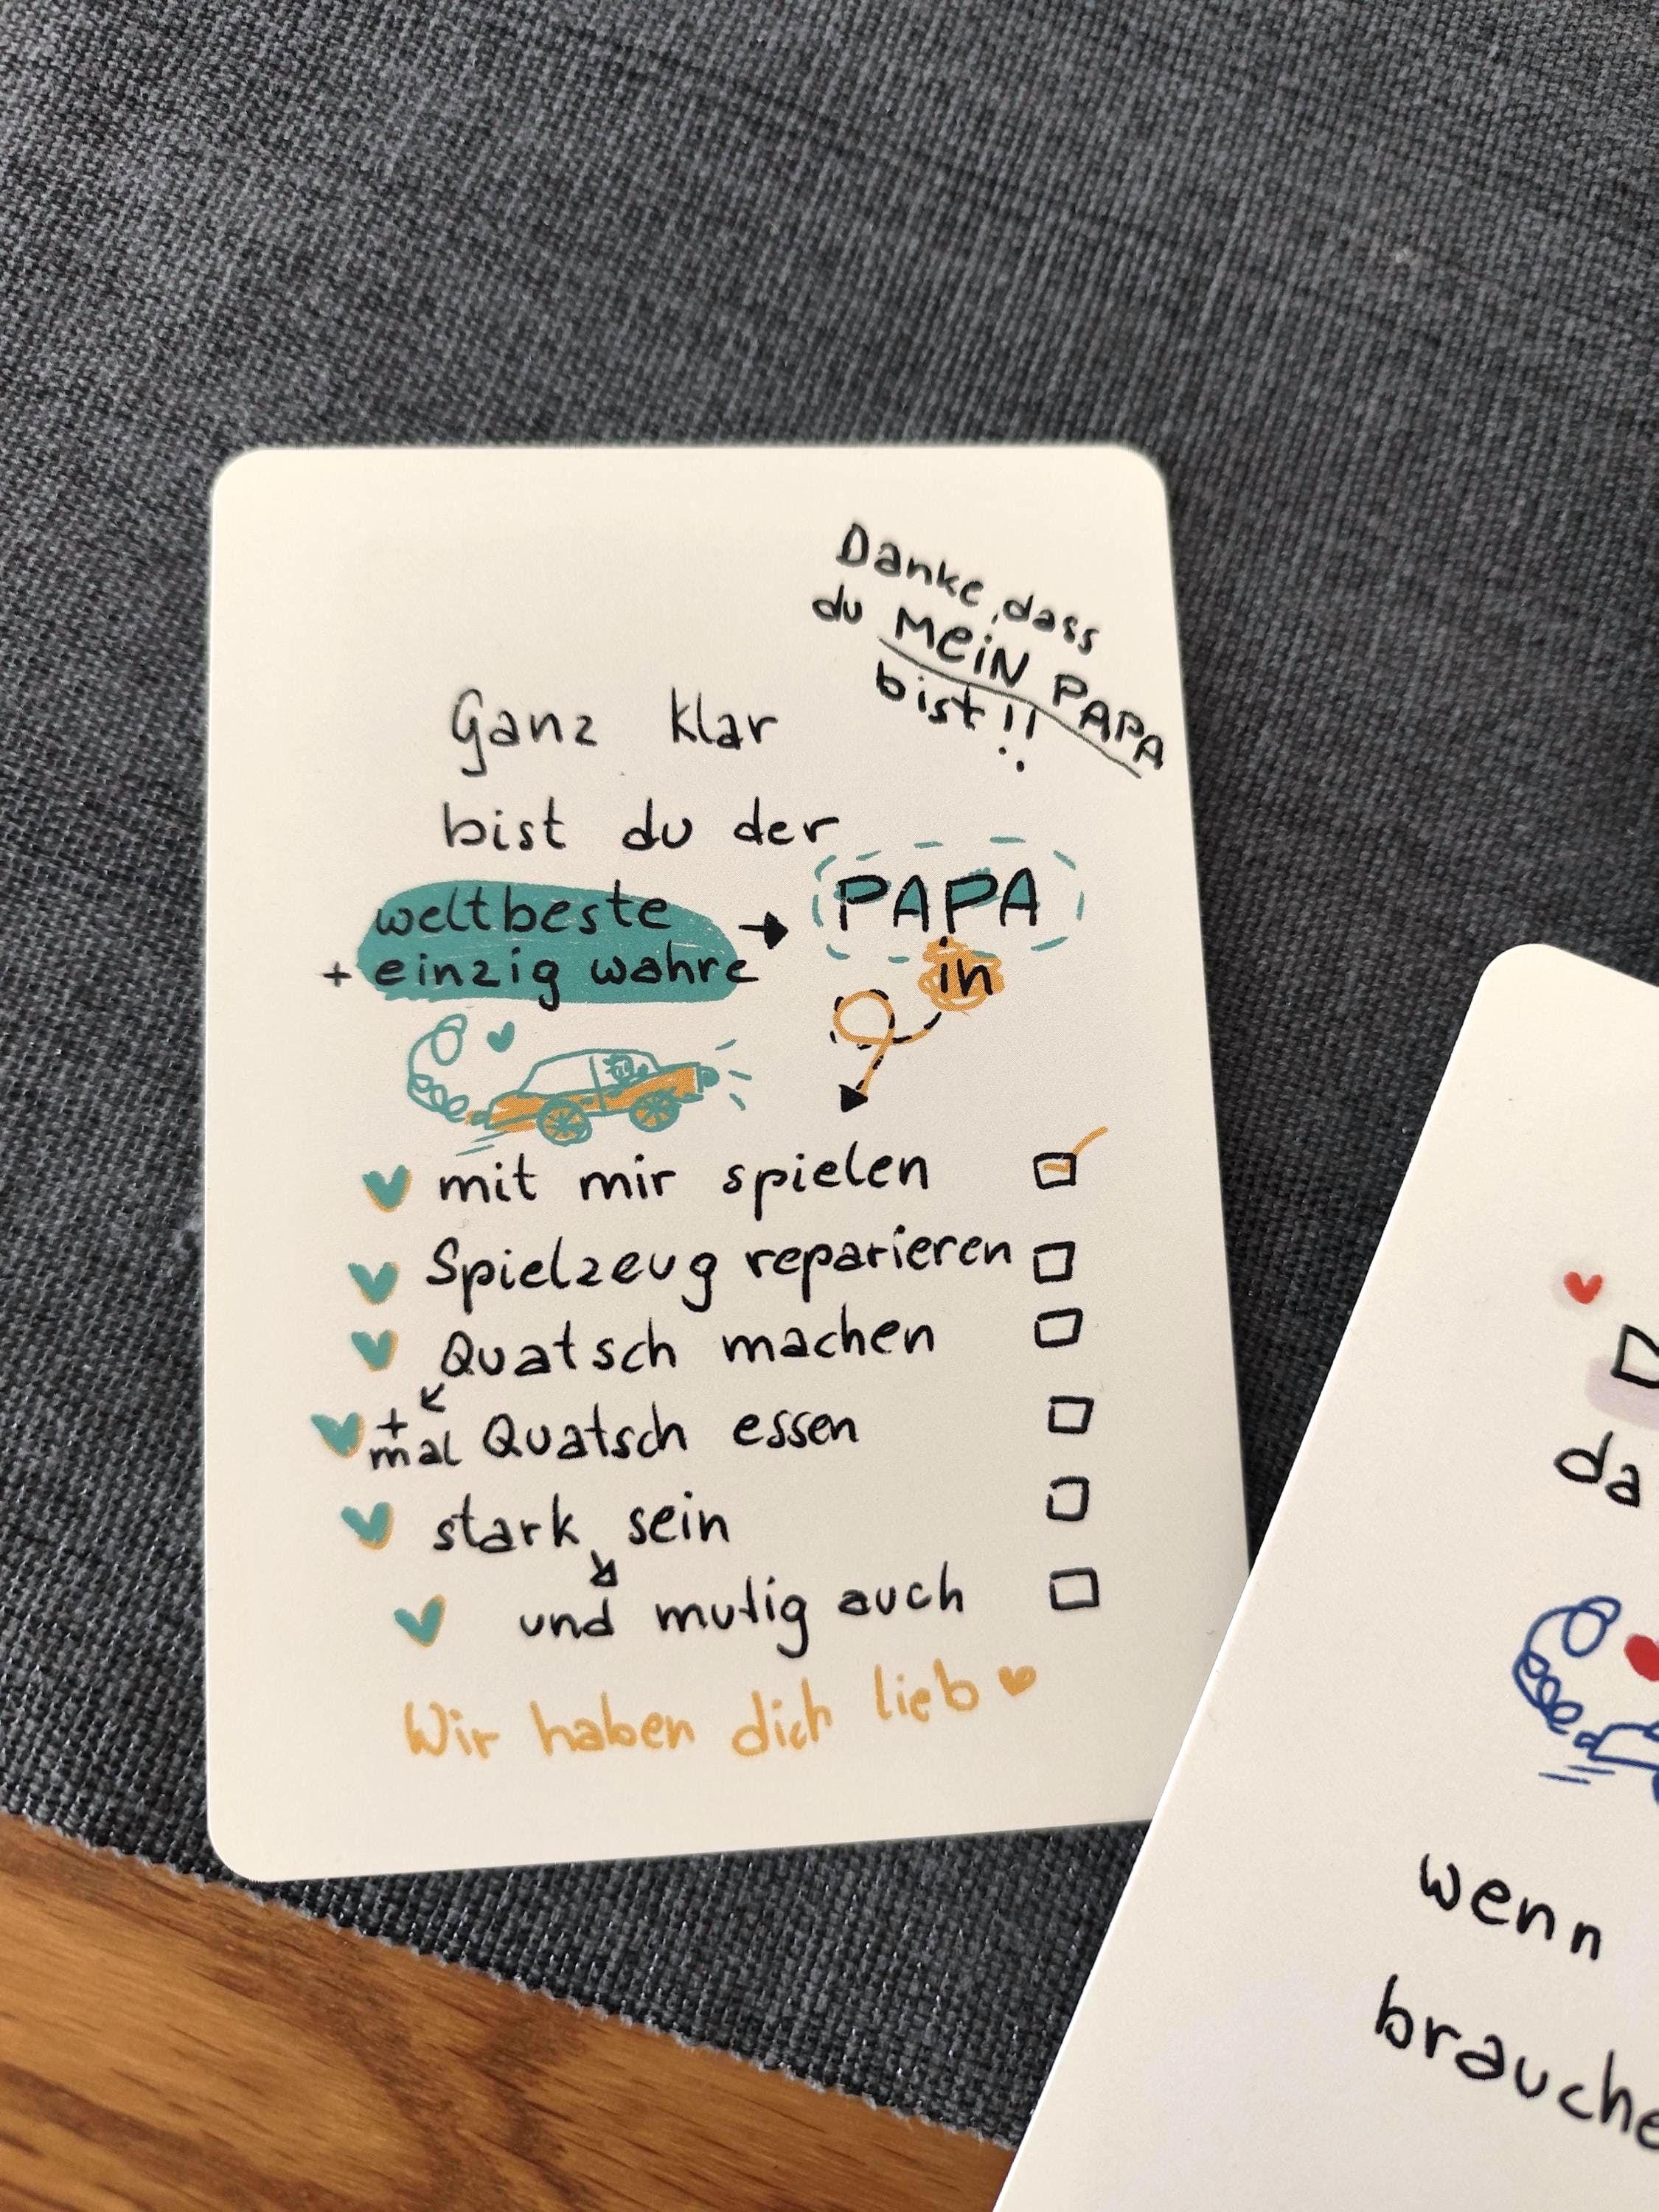 Danke, dass
du MEiN PAPA
bist!!
Ganz klar
bist du der
weltbeste → PAPA
+ einzig wahre
in
mit mir spielen
Spielzeug reparieren
Quatsch machen
+
mal Quatsch essen
stark sein
und mutig auch
Wir haben dich lieb
da
wenn
brauche